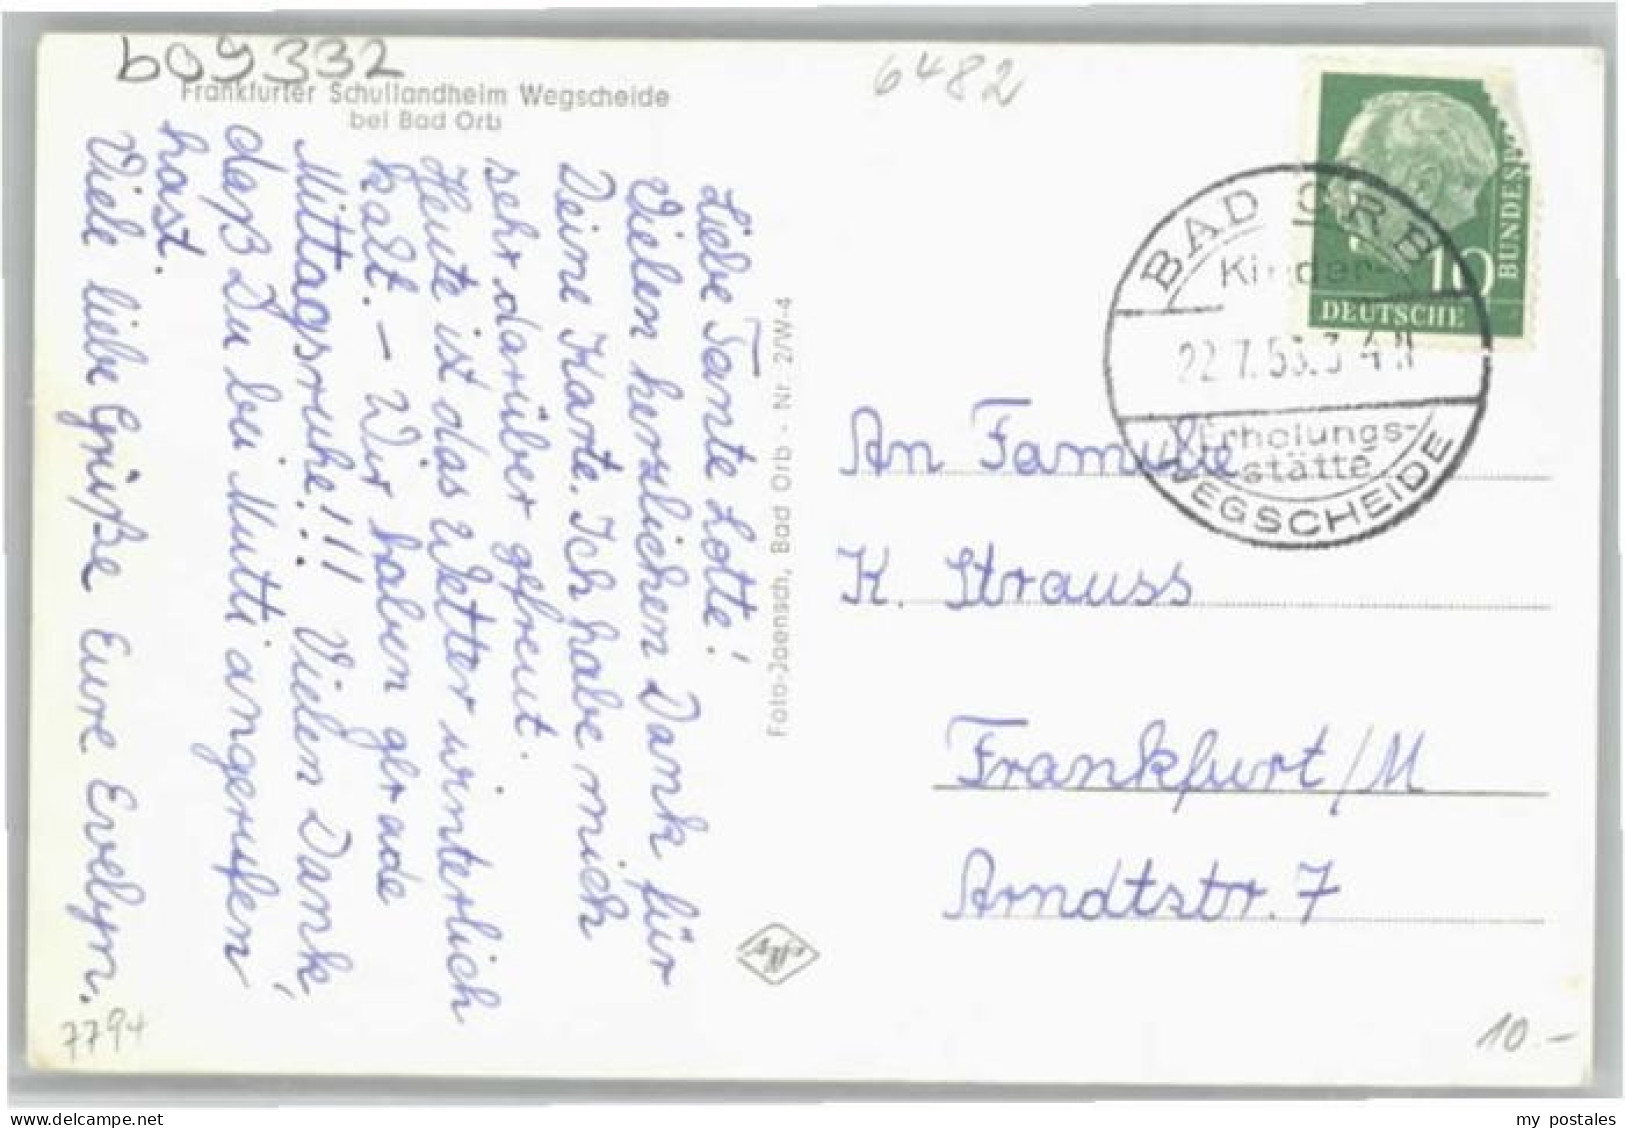 b09332
Frankfurter Schullandheim Wegscheide
bei Bad Orb
6482
Liebe Tante Lotte!
Vielen herzlichen Dank für
Deine Karte. Ich habe mich
sehr darüber gefreut.
Heute ist das Wetter winterlich
kalt. – Wir haben gerade
Mittagsruhe!!! Vielen Dank
daß Du bei Mutti angerufen
hast.
Viele liebe Grüße Eure Evelyn.
7794
Foto-Jaensch, Bad Orb - Nr. 2/W-4
BUNDESP
10
DEUTSCHE
BAD ORB
Kinder-
22.7.
Erholungs-
stätte
WEGSCHEIDE
An Familie
K. Strauss
Frankfurt/M
Arndtstr. 7
10.-
delcampe.net
my_postales